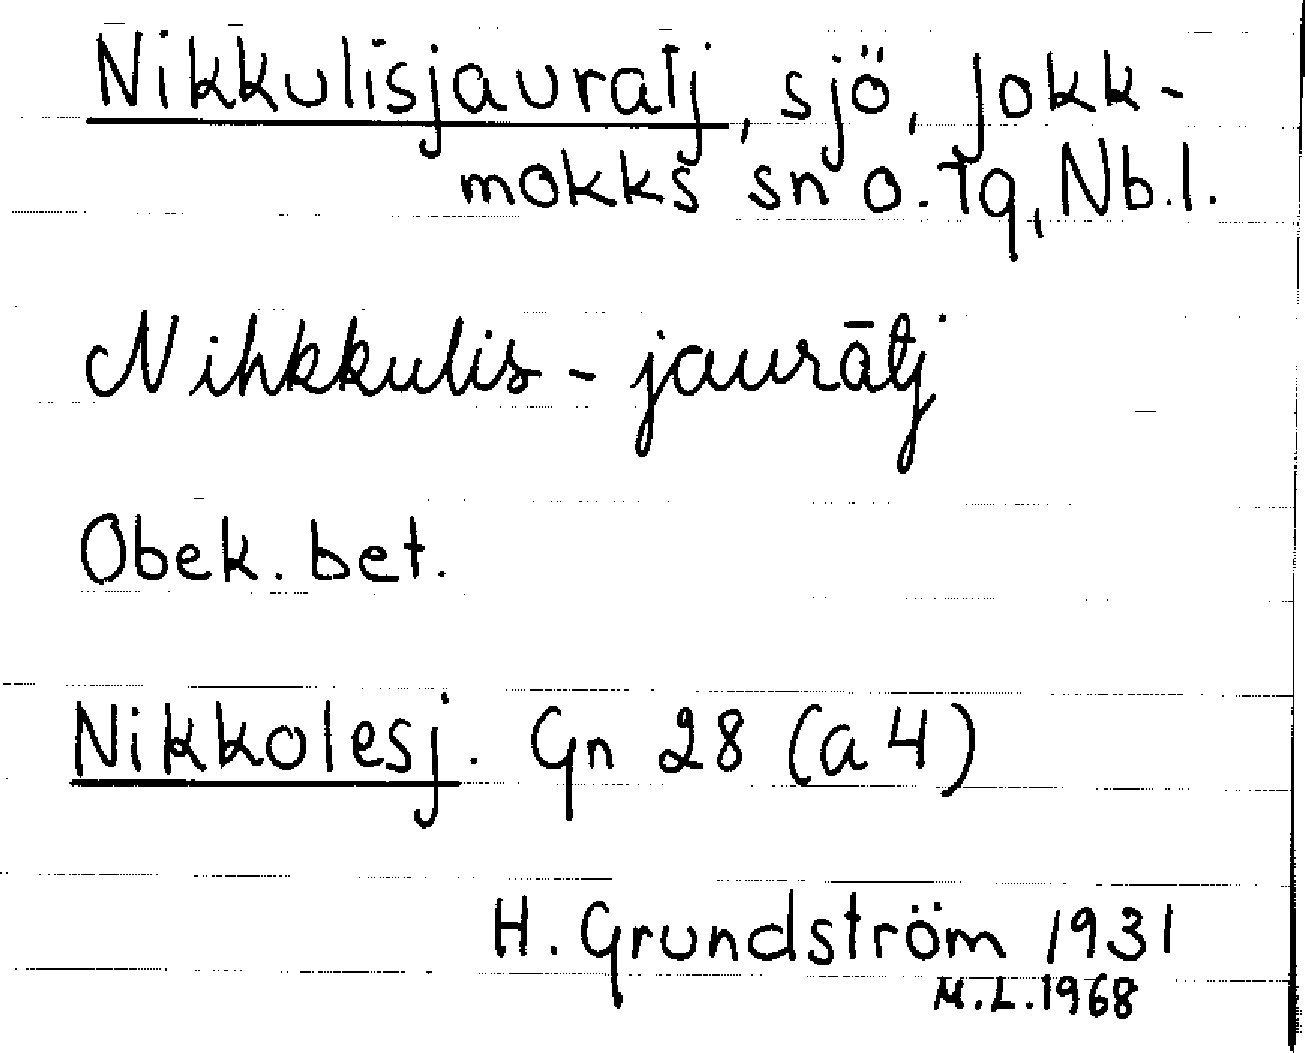 Nikkulisjauratj, sjö, Jokk-
mokks sn o. tg, Nb.l.
Nihkkulis-jaurātj
Obek. bet.
Nikkolesj. Gn 28 (a 4)
H. Grundström 1931
M.L. 1968